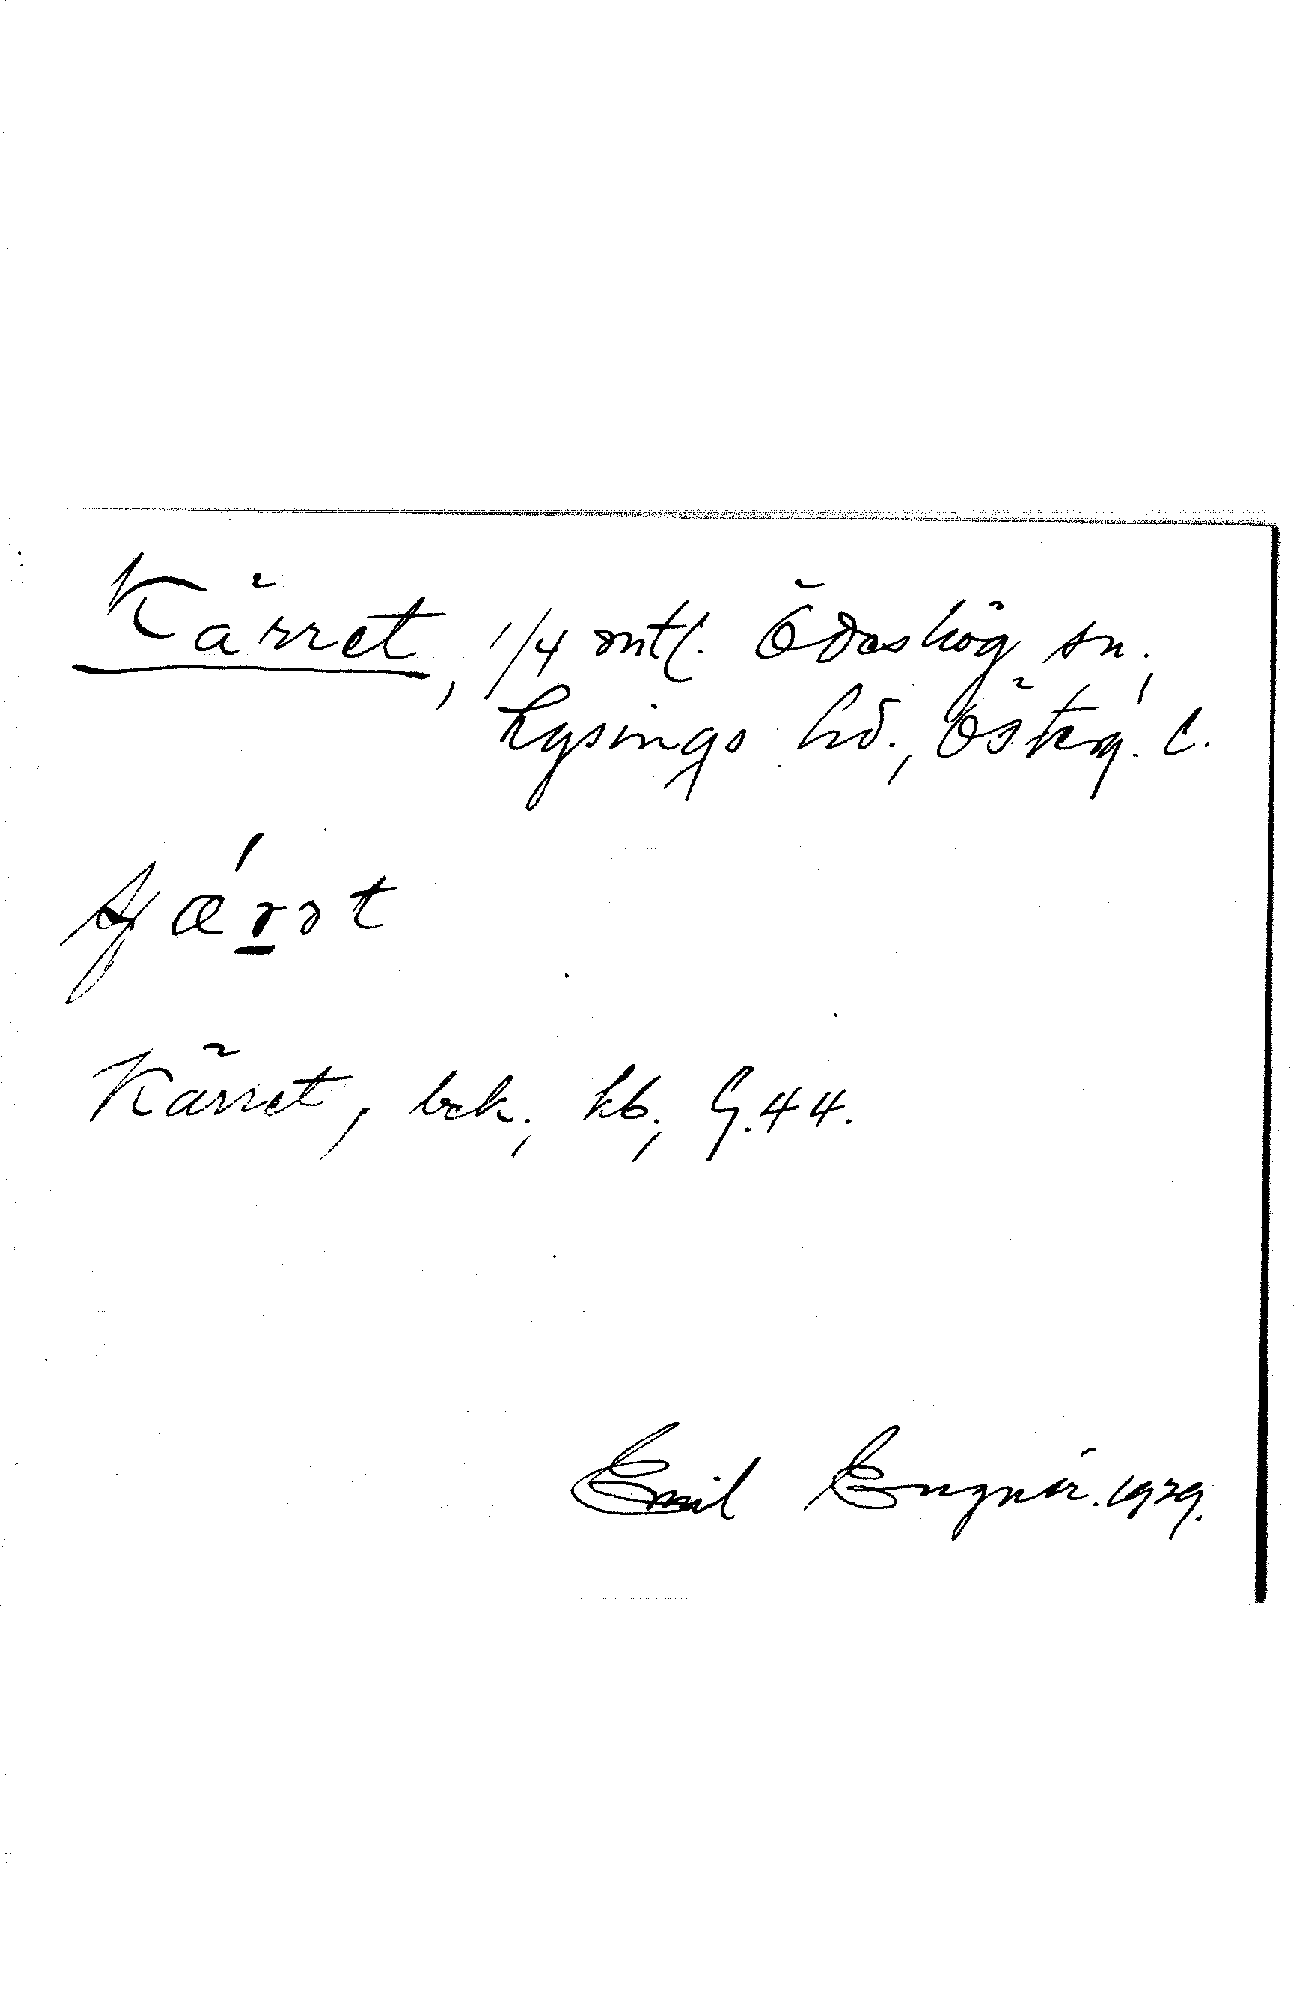 Kärret, 1/4 mtl. Ödeshög sn.,
Lysings hd., Österg. l.
Kärret, bek., kb., G.44.
Emil Engnér. 1929.